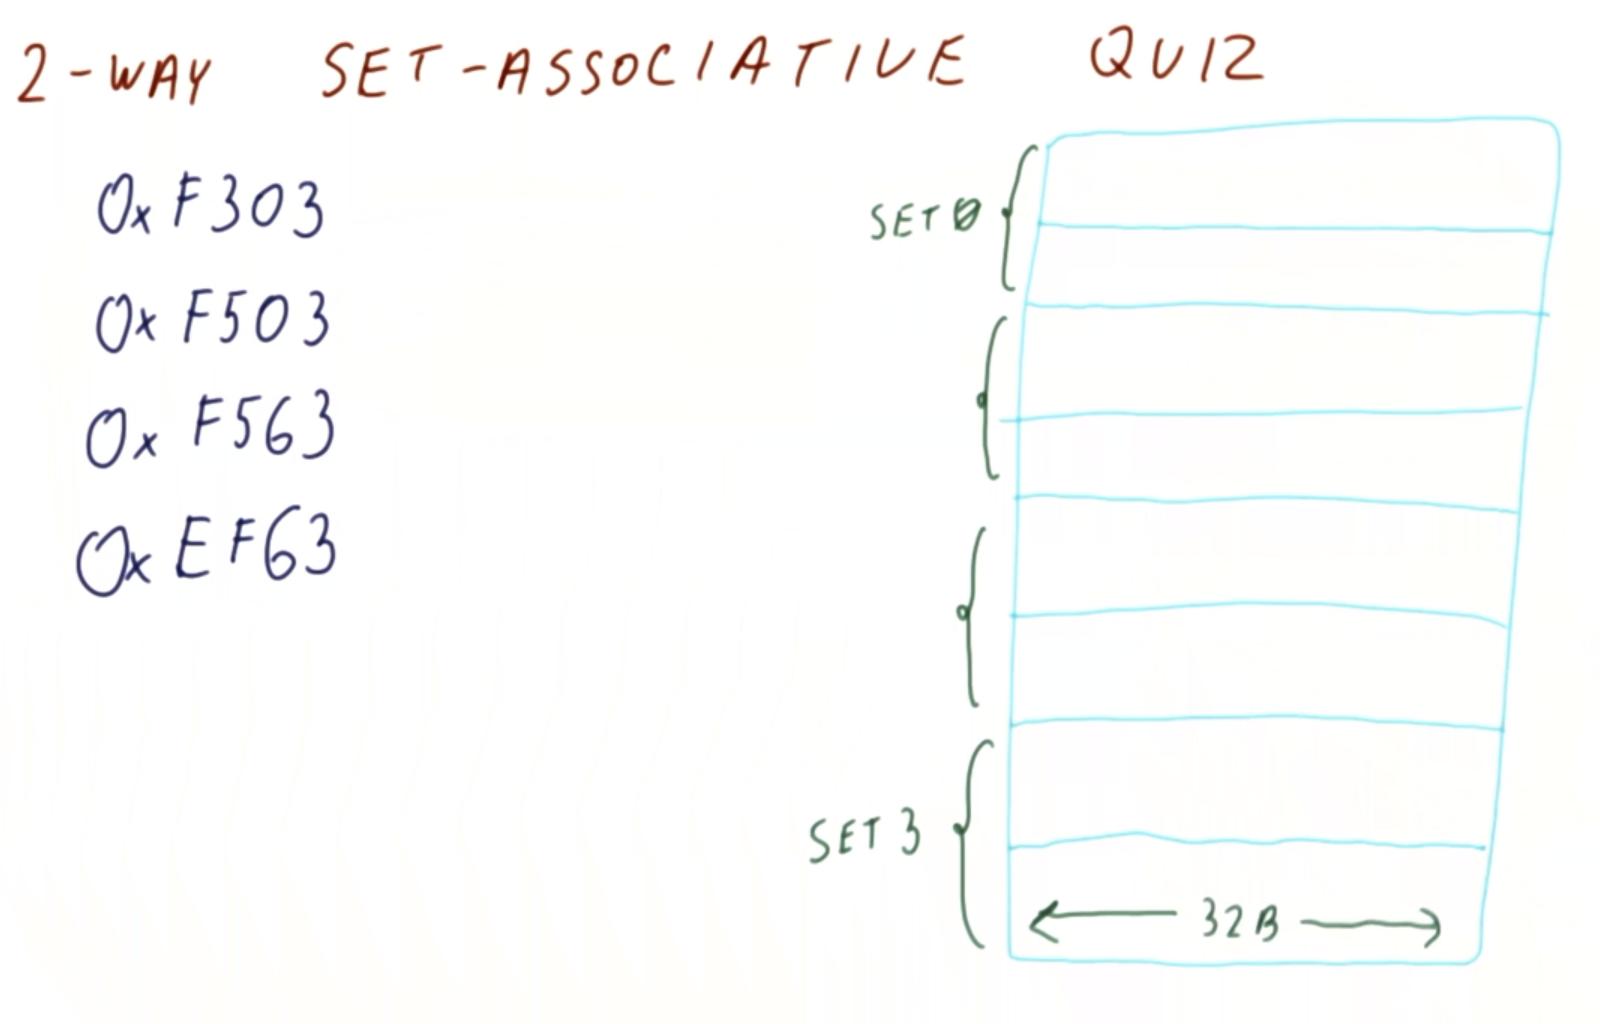 2-WAY SET-ASSOCIATIVE QUIZ
0xF303
0xF503
0xF563
0xEF63
SET 0
SET 3
32B